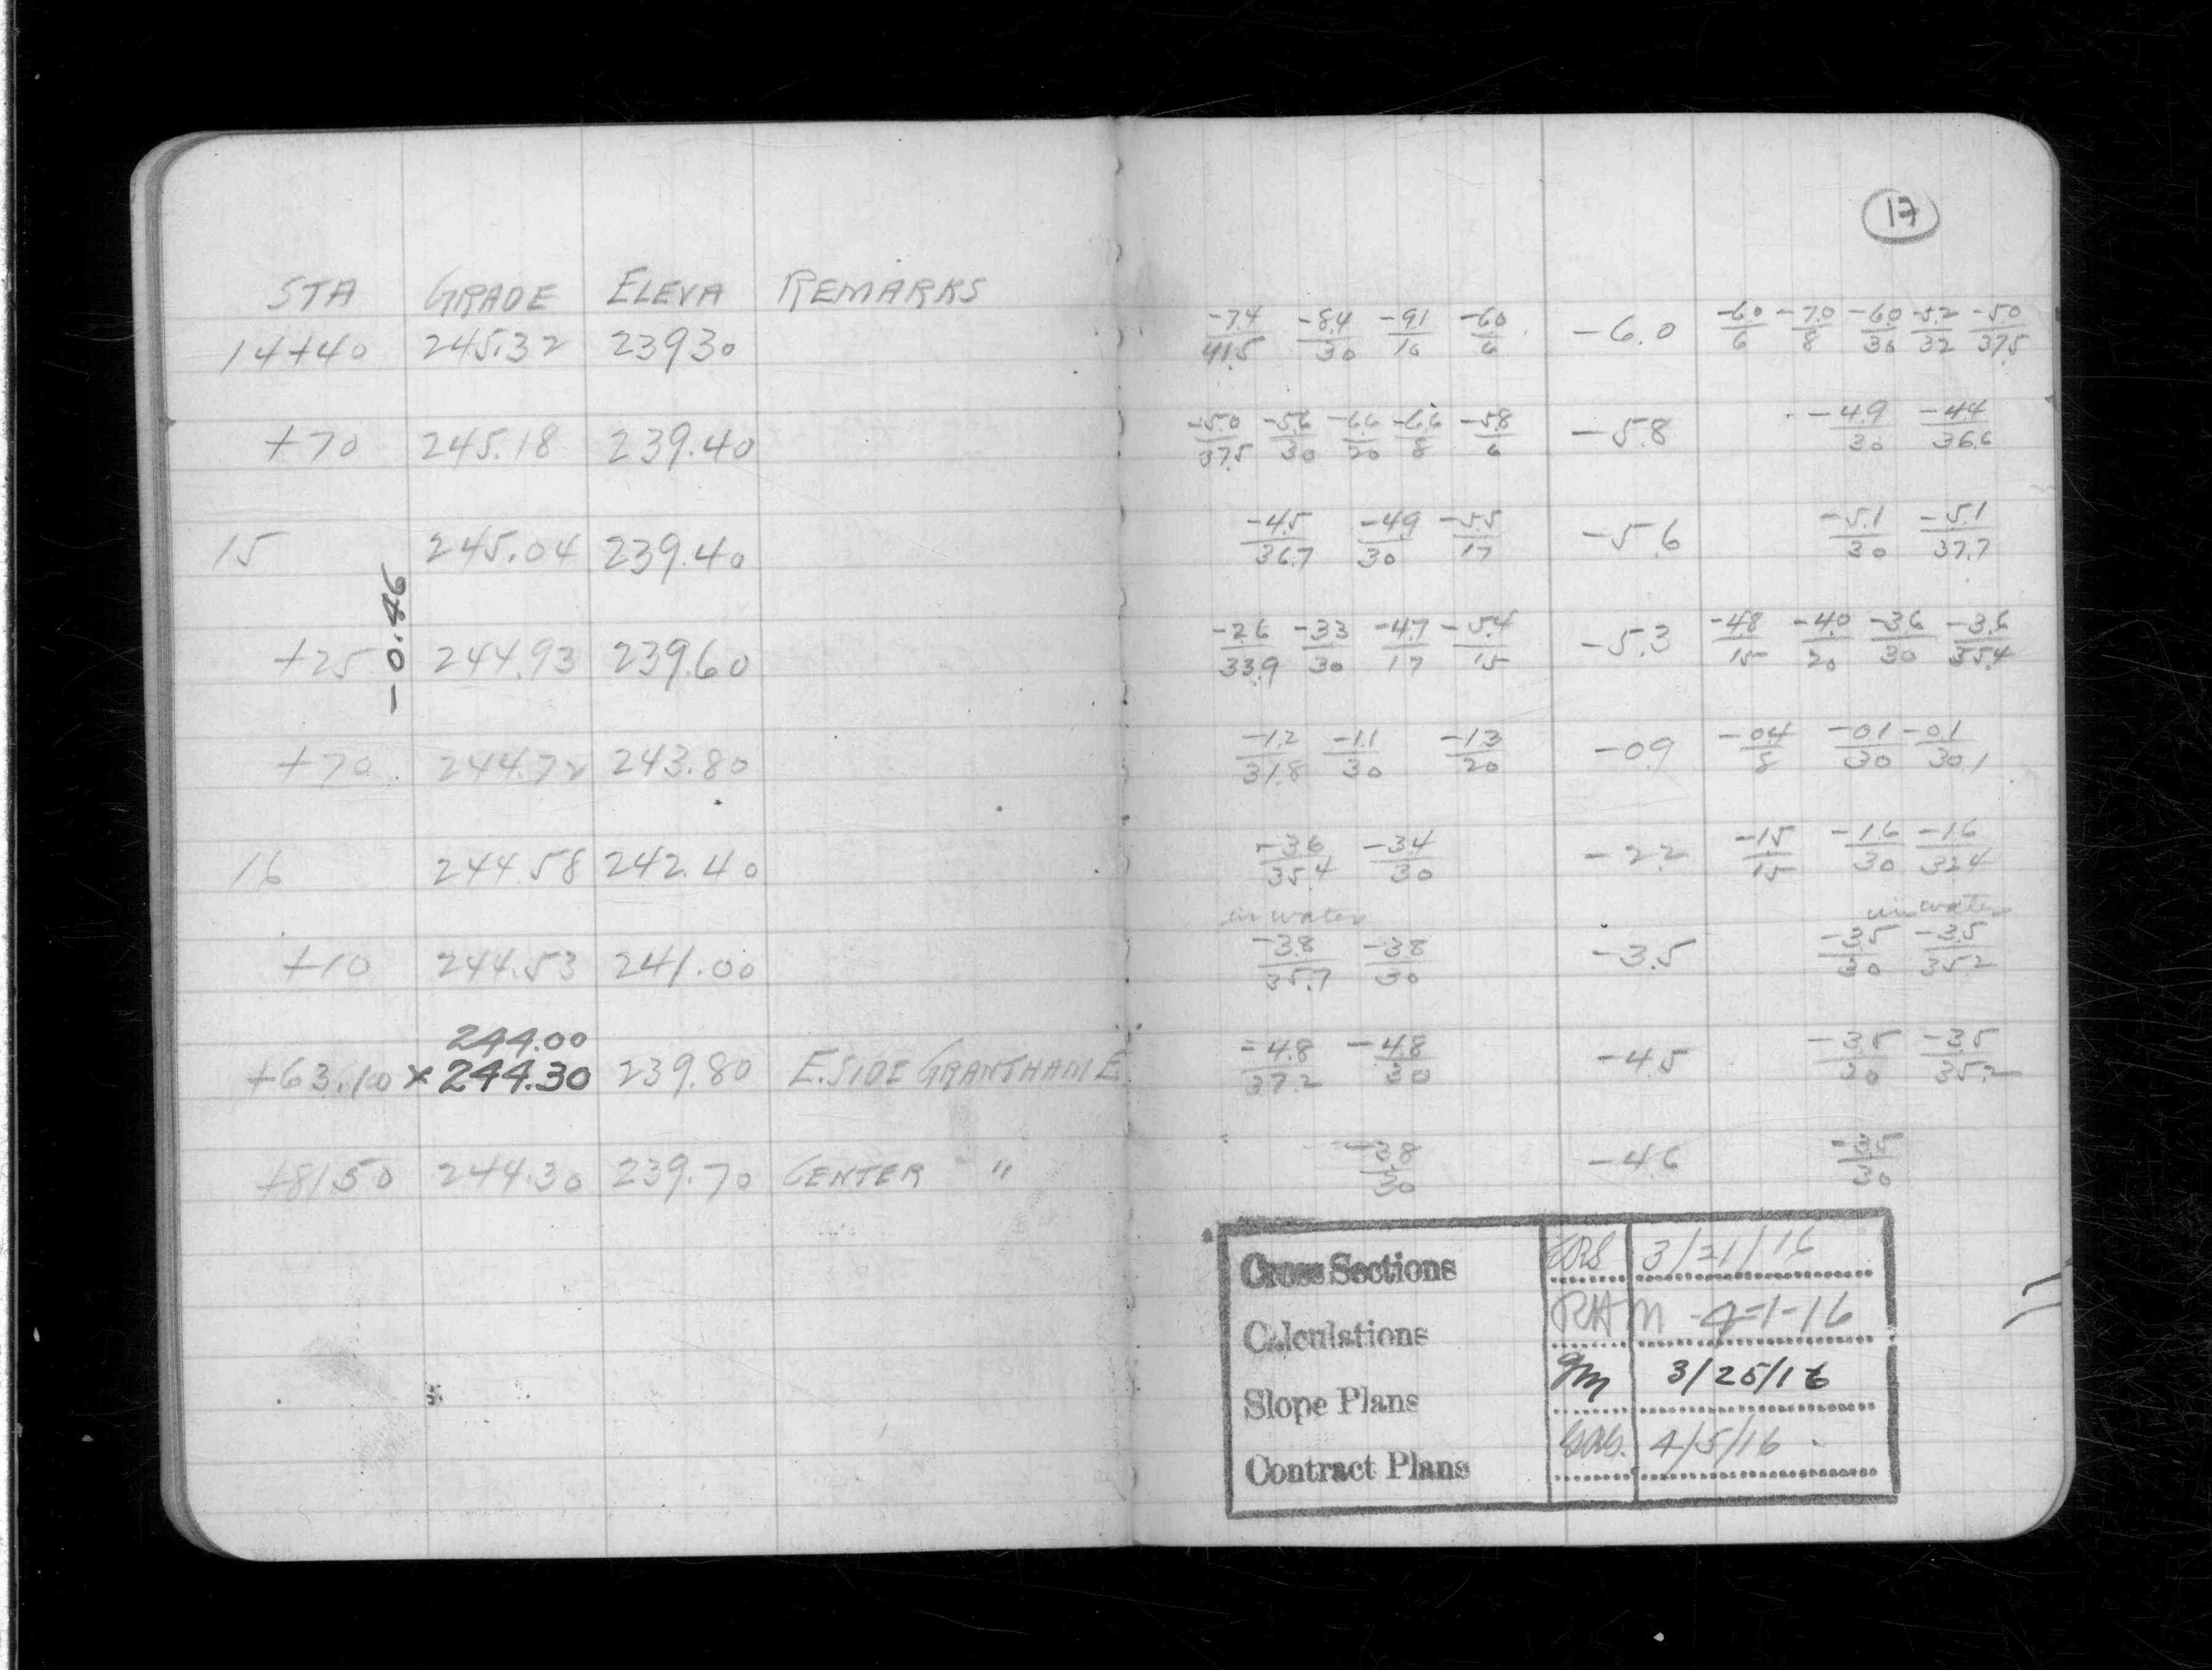 17
STA GRADE ELEVA REMARKS
14+40 245.32 239.30 -7.4/41.5 -8.4/30 -9.1/10 -6.0/6 -6.0 -6.0/6 -7.0/8 -6.0/30 -5.2/32 -5.0/37.5
+70 245.18 239.40 -5.0/37.5 -5.6/30 -6.6/20 -6.6/8 -5.8/6 -5.8 -4.9/30 -4.4/36.6
15 245.04 239.40 -4.5/36.7 -4.9/30 -5.5/17 -5.6 -5.1/30 -5.1/37.7
-0.46
+25 244.93 239.60 -2.6/33.9 -3.3/30 -4.7/17 -5.4/15 -5.3 -4.8/15 -4.0/20 -3.6/30 -3.6/35.4
+70 244.72 243.80 -1.2/31.8 -1.1/30 -1.3/20 -0.9 -0.4/8 -0.1/30 -0.1/30.1
16 244.58 242.40 -3.6/35.4 -3.4/30 -2.2 -1.5/15 -1.6/30 -1.6/32.4
in water in water
+10 244.53 241.00 -3.8/35.7 -3.8/30 -3.5 -3.5/30 -3.5/35.2
244.00
+63.10 × 244.30 239.80 E. SIDE GRANTHAM E -4.8/37.2 -4.8/30 -4.5 -3.5/30 -3.5/35.2
+81.50 244.30 239.70 CENTER " -3.8/30 -4.6 -3.5/30
Cross Sections 3/21/16
Calculations RHM 4-1-16
Slope Plans 3/25/16
Contract Plans 4/5/16